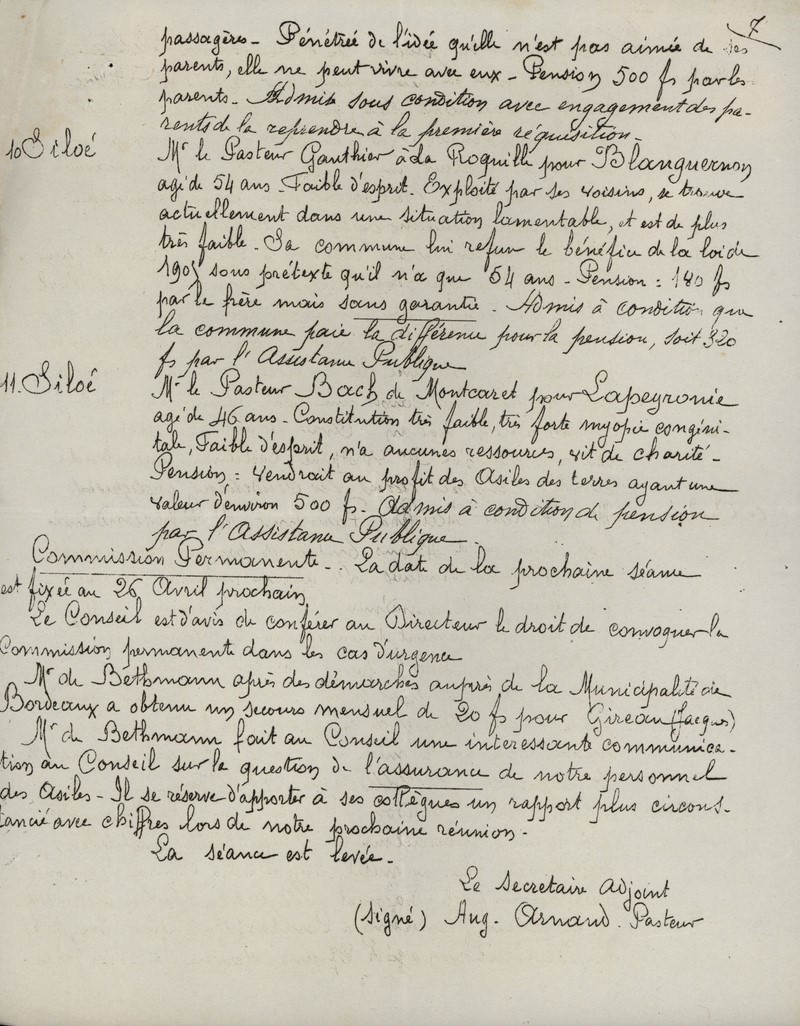 7
passagères - Pénétrée de l'idée qu'elle n'est pas aimée de ses
parents, elle ne peut vivre avec eux - Pension 500 fs par les
parents - Admise sous condition avec engagement des pa-
rents de la reprendre à la première réquisition -
10 Siloé
Mr le Pasteur Gauthier à La Roquille pour Blanguernon
agé de 54 ans - Faible d'esprit. Exploité par ses voisins, se trouve
actuellement dans une situation lamentable, et est de plus
très faible - Sa commune lui refuse le bénéfice de la loi de
1905 sous prétexte qu'il n'a que 54 ans - Pension : 180 fs
par le frère mais sans garantie - Admis à condition que
la commune paie la différence pour la pension, soit 320
fs par l'Assistance Publique
11. Siloé
Mr le Pasteur Bach de Montcaret pour Lapeyronie
agé de 46 ans - Constitution très faible, très forte myopie congéni-
tale, Faible d'esprit, n'a aucunes ressources, vit de charité -
Pension : Vendrait au profit des Asiles des terres ayant une
valeur d'environ 500 fs - Admis à condition de pension
par l'Assistance Publique -
Commission Permanente - . La date de la prochaine séance
est fixée au 26 Avril prochain
Le Conseil est d'avis de conférer au Directeur le droit de convoquer la
Commission permanente dans les cas d'urgence
Mr de Bethmann après des démarches auprès de la Municipalité de
Bordeaux a obtenu un secours mensuel de 20 fs pour Gireau (Jacques)
Mr de Bethmann fait au Conseil une interessante communica-
tion au Conseil sur la question de l'assurance de notre personnel
des Asiles - Il se réserve d'apporter à ses collègues un rapport plus circons-
tancié avec chiffres lors de notre prochaine réunion -
La séance est levée -
Le secretaire adjoint
(signé) Aug. Arnaud. Pasteur